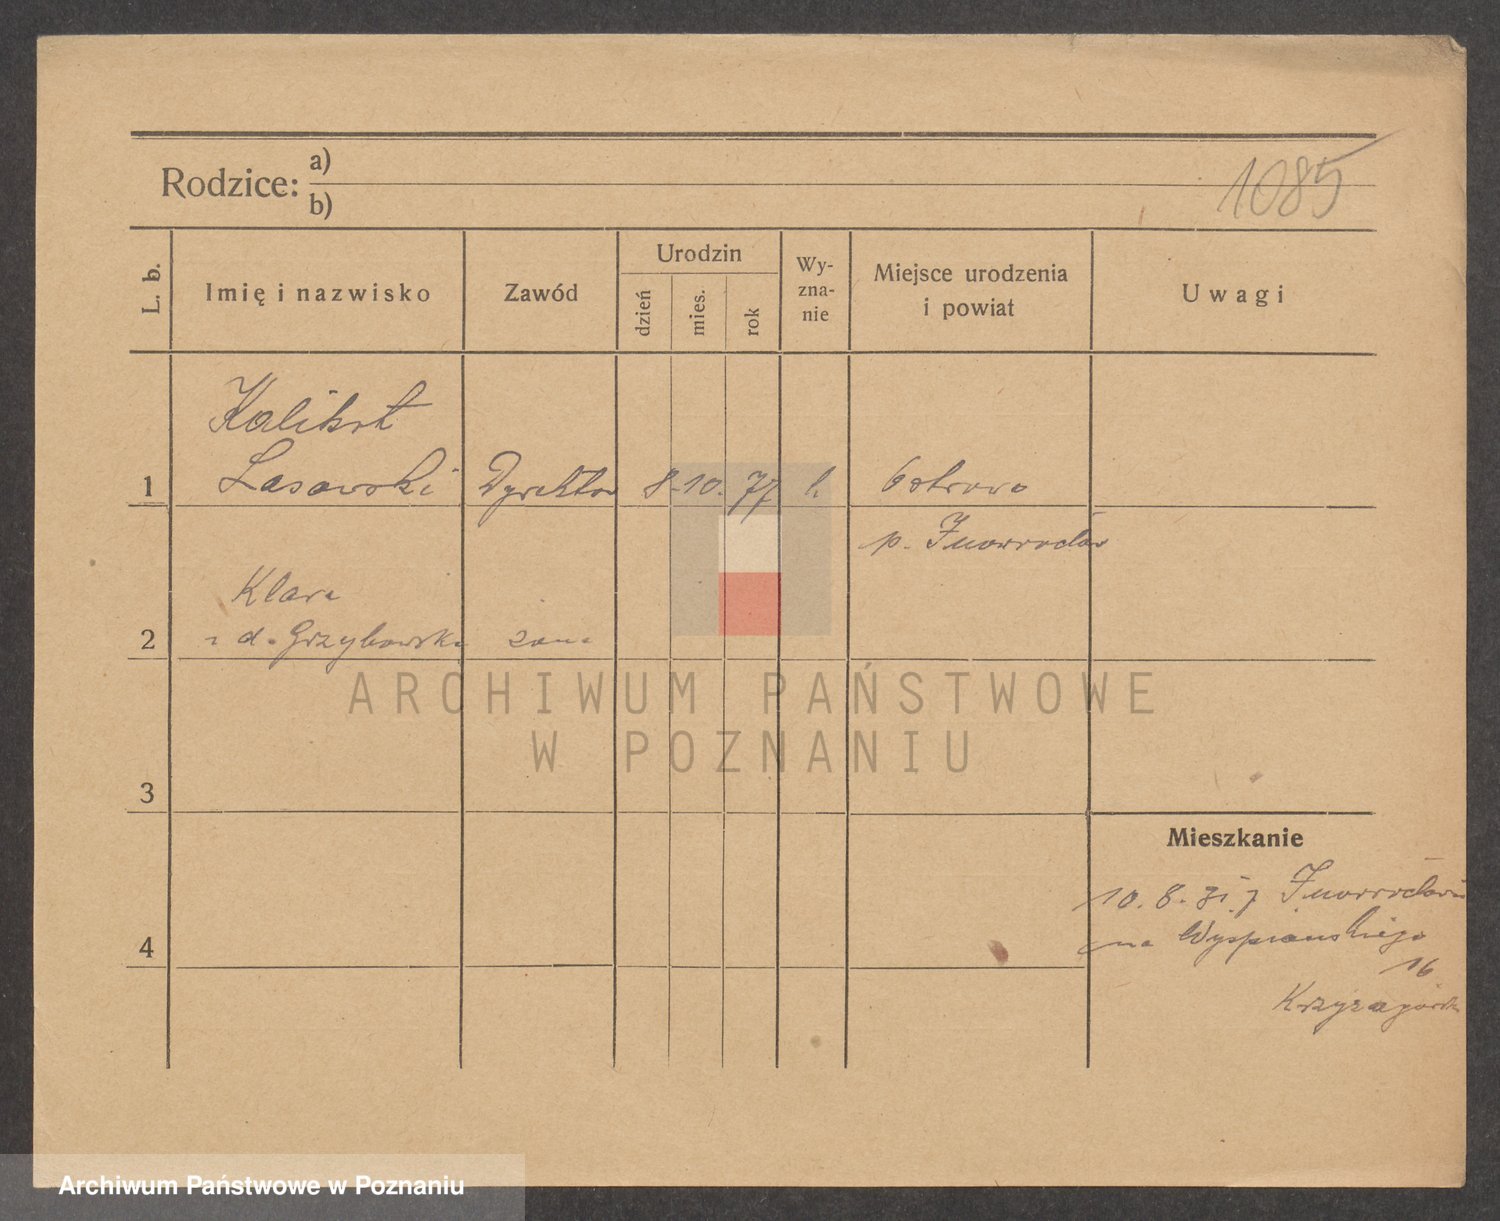 1085
Rodzice:
a)
b)
L. b.
Imię i nazwisko
Zawód
Urodzin
dzień
mies.
rok
Wy-
zna-
nie
Miejsce urodzenia
i powiat
Uwagi
Kalikst
1 Lasowski Dyrektor 8. 10. 77 k. Ostrowo
p. Inowrocław
Klara
2 z d. Grzybowska żona
3
4
Mieszkanie
10. 8. 31 z Inowrocławia
na Wyspiańskiego
16
ARCHIWUM PAŃSTWOWE
W POZNANIU
Archiwum Państwowe w Poznaniu